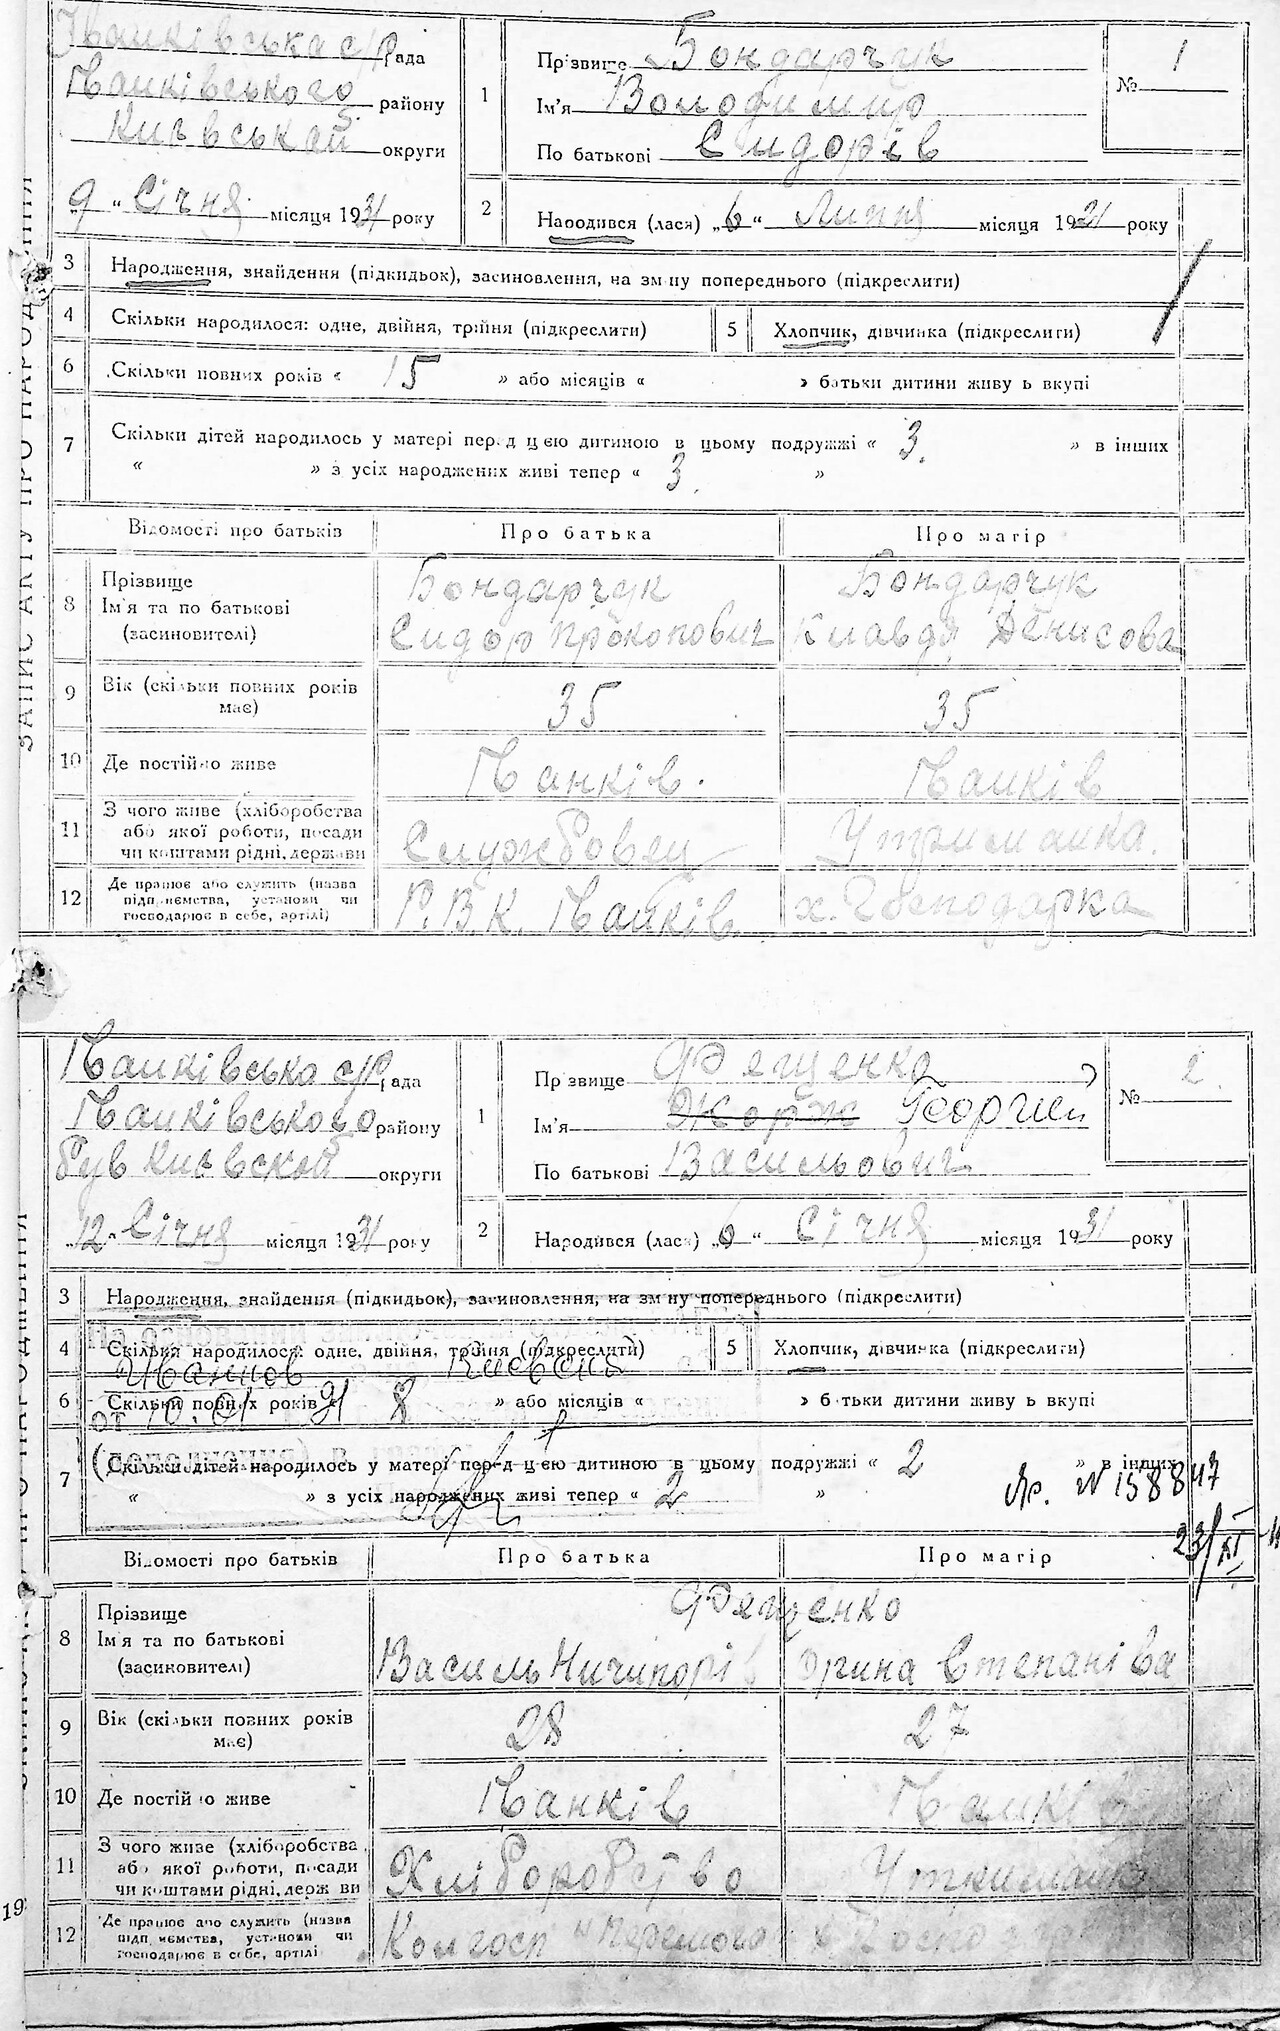 Іванківська с/рада
Іванківського району
Київської округи
„9“ Січня місяця 1931 року
1
Прізвище Бондарчук
Ім'я Володимир
По батькові Сидорів
№ 1
2
Народився (лася) „6“ Липня місяця 1921 року
3 Народження, знайдення (підкидьок), засиновлення, на зміну попереднього (підкреслити)
4 Скільки народилося: одне, двійня, трійня (підкреслити)
5 Хлопчик, дівчинка (підкреслити)
6 Скільки повних років « 15 » або місяців « » батьки дитини живуть вкупі
7 Скільки дітей народилось у матері перед цією дитиною в цьому подружжі « 3. » в інших
« » з усіх народжених живі тепер « 3. »
Відомості про батьків Про батька Про матір
8 Прізвище Ім'я та по батькові (засиновителі)
Бондарчук Бондарчук
Сидор Прокопович Клавдя Денисова
9 Вік (скільки повних років має) 35 35
10 Де постійно живе Іванків. Іванків
11 З чого живе (хліборобства або якої роботи, посади чи коштами рідні, держави
Службовец Утриманка.
12 Де працює або служить (назва підприємства, установи чи господарює в себе, артілі)
Р.В.К. Іванків х. Господарка
ЗАПИС АКТУ ПРО НАРОДЖЕННЯ
Іванківсько с/рада
Іванківського району
був Киівской округи
„12“ Січня місяця 1931 року
1
Прізвище Фещенко
Ім'я Жорж Георгий
По батькові Васильович
№ 2.
2
Народився (лася) „6“ Січня місяця 1931 року
3 Народження, знайдення (підкидьок), засиновлення, на зміну попереднього (підкреслити)
4 Скільки народилося: одне, двійня, трійня (підкреслити)
5 Хлопчик, дівчинка (підкреслити)
6 Скільки повних років « 8 » або місяців « » батьки дитини живуть вкупі
от 10.01
7 Скільки дітей народилось у матері перед цією дитиною в цьому подружжі « 2 » в інших
« » з усіх народжених живі тепер « 2 »
N 158847
23/XI
Відомості про батьків Про батька Про матір
8 Прізвище Ім'я та по батькові (засиновителі)
Фещенко
Василь Ничипорів Орина Степаніва
9 Вік (скільки повних років має) 28 27
10 Де постійно живе Іванків Іванків
11 З чого живе (хліборобства або якої роботи, посади чи коштами рідні, держави
Хліборобство Утриманка
12 Де працює або служить (назва підприємства, установи чи господарює в себе, артілі
Колгосп
19